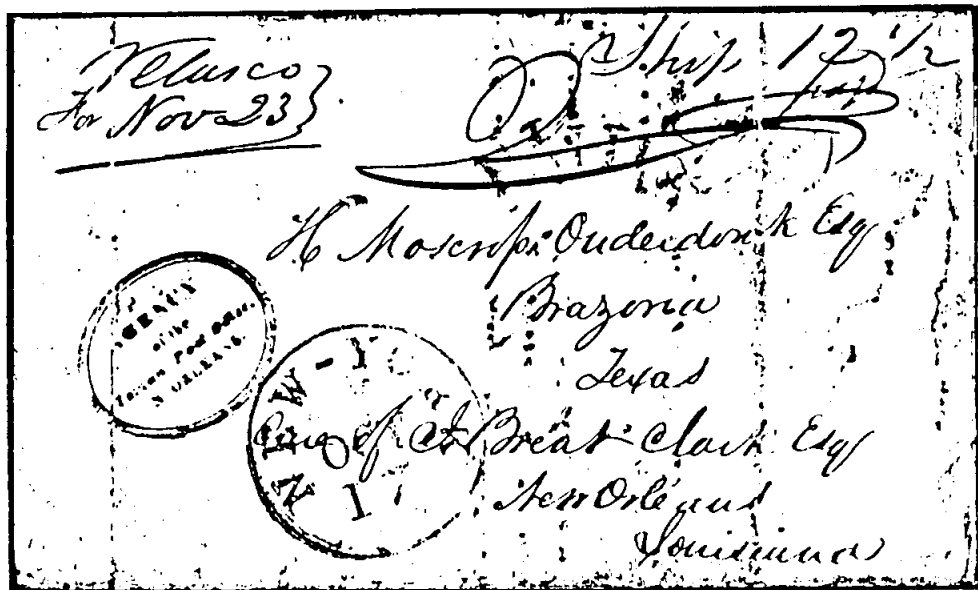 Velasco
For Nov 23
Ship 12 1/2
H Moscrip Ouderdonk Esq
Brazoria
Texas
Care of Breat Clark Esq
New Orleans
Louisiana
AGENCY
of the
Texian Post Office.
N. ORLEANS.
NEW-YO